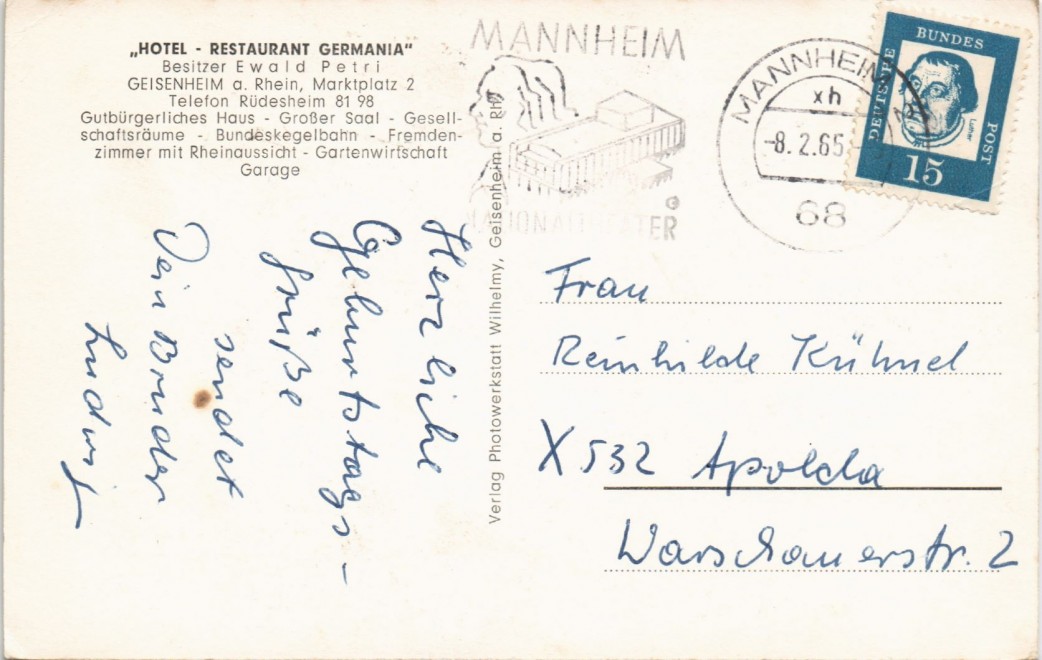 „HOTEL - RESTAURANT GERMANIA"
Besitzer Ewald Petri
GEISENHEIM a. Rhein, Marktplatz 2
Telefon Rüdesheim 81 98
Gutbürgerliches Haus - Großer Saal - Gesell-
schaftsräume - Bundeskegelbahn - Fremden-
zimmer mit Rheinaussicht - Gartenwirtschaft
Garage
Herzliche
Geburtstags-
grüße
sendet
Dein Bruder
Ludwig
Verlag Photowerkstatt Wilhelmy, Geisenheim a. Rh.
MANNHEIM
NATIONALTHEATER
MANNHEIM
xh
-8.2.65-
68
DEUTSCHE
BUNDES
POST
Luther
15
Frau
Reinhilde Kühnel
X 532 Apolda
Warschauerstr. 2